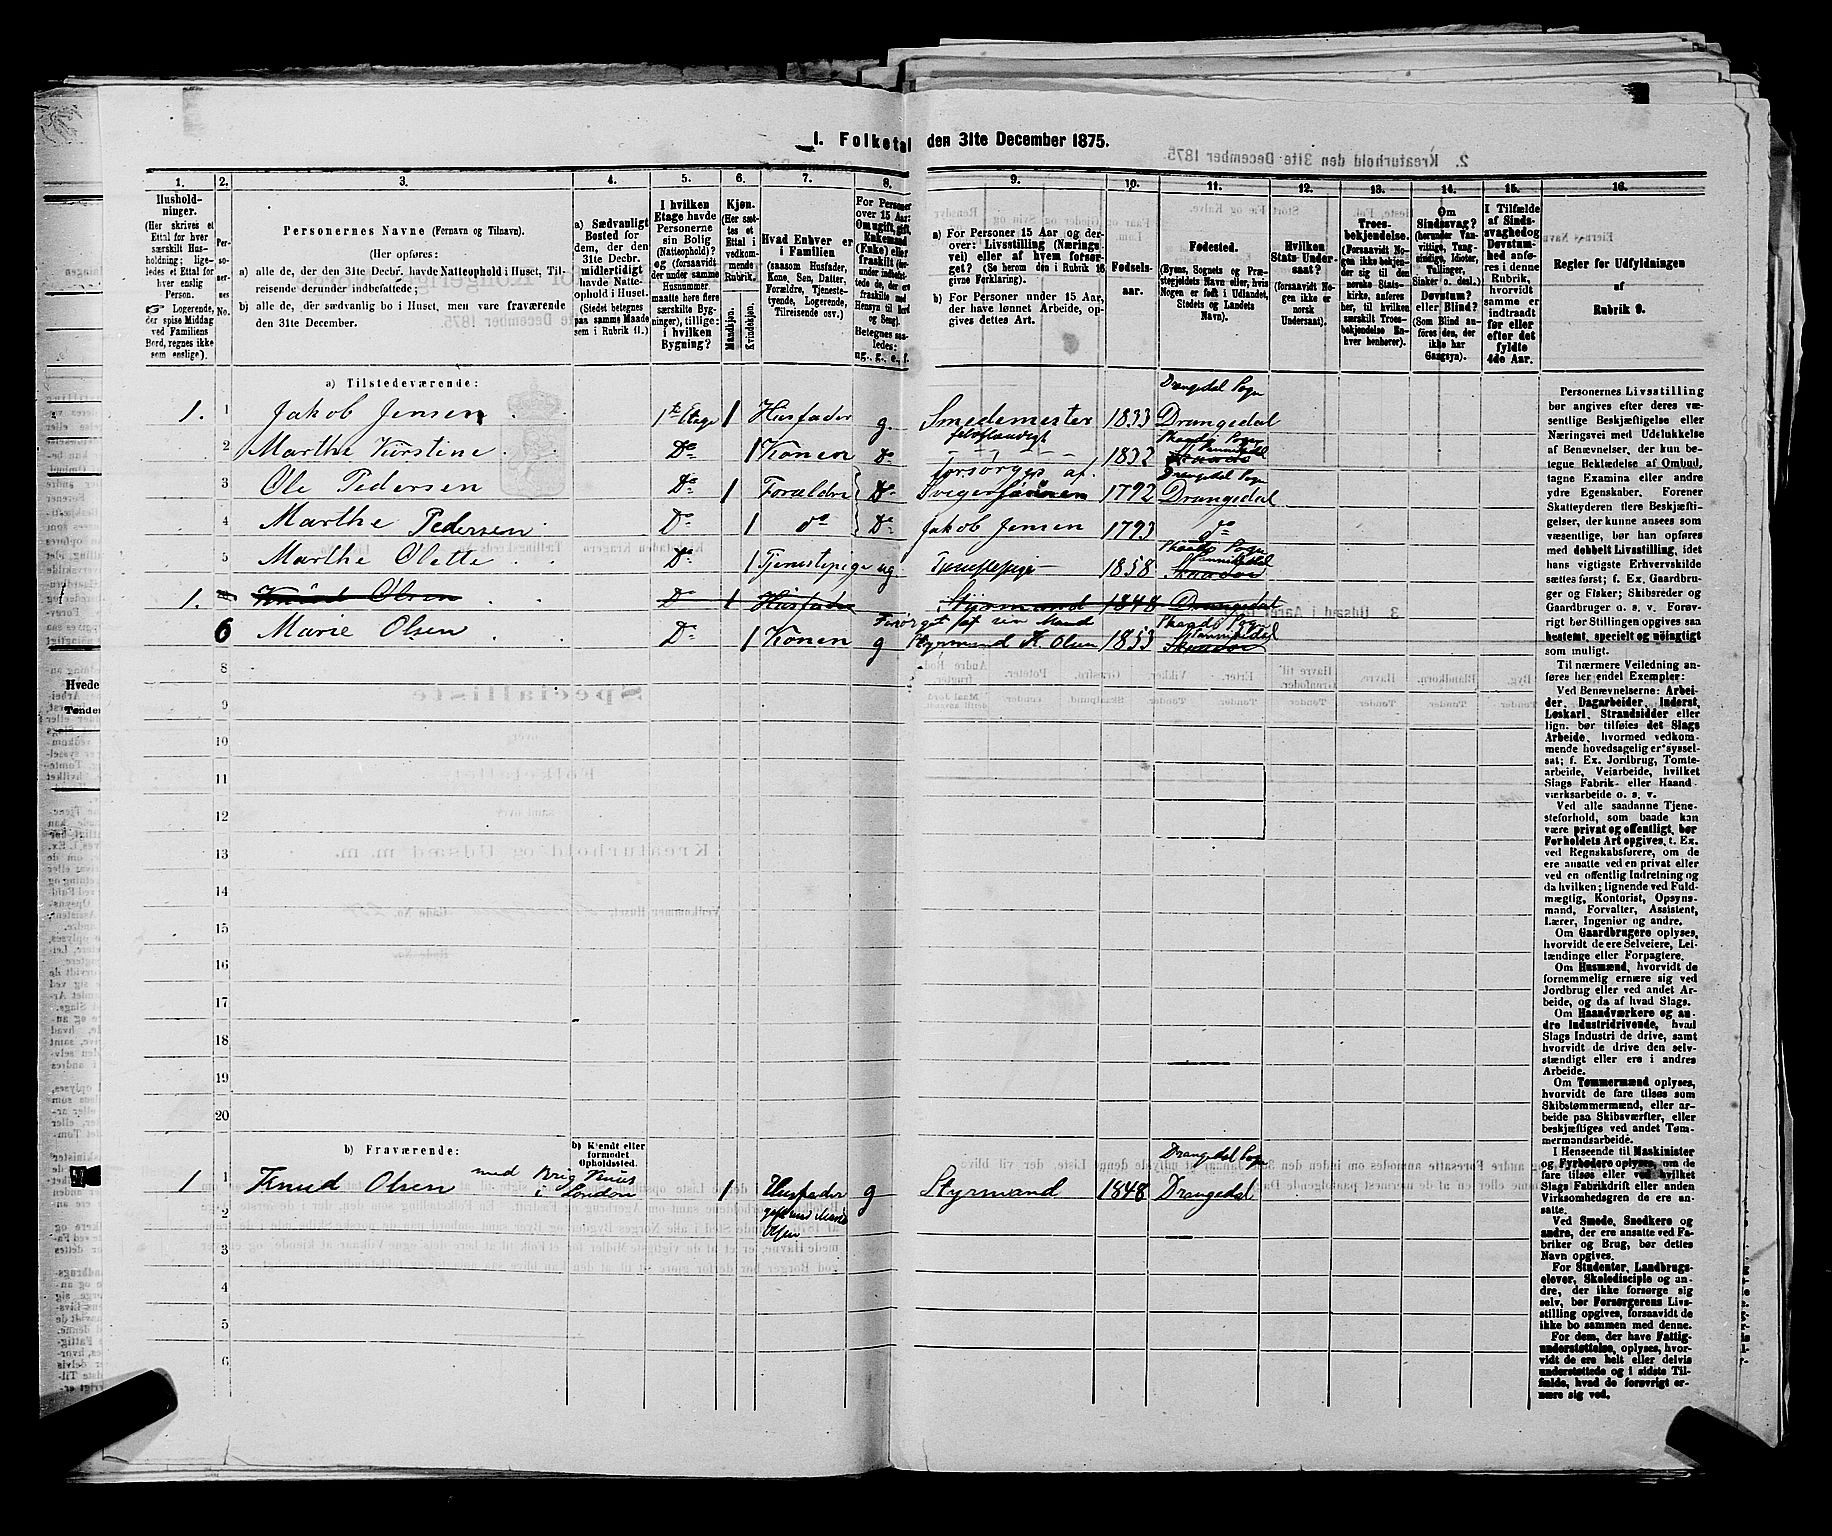 1. Folketal den 31te December 1875.
1. 2. 3. 4. 5. 6. 7. 8. 9. 10. 11. 12. 13. 14. 15. 16.
Hushold-
ninger.
(Her skrives et
Ettal for hver
særskilt Hus-
holdning; lige-
ledes et Ettal for
hver enslig
Person.
☞ Logerende,
der spise Middag
ved Familiens
Bord, regnes ikke
som enslige).
Per-
so-
ner-
nes
No.
Personernes Navne (Fornavn og Tilnavn).
(Her opføres:
a) alle de, der den 31te Decbr. havde Natteophold i Huset, Til-
reisende derunder indbefattede;
b) alle de, der sædvanlig bo i Huset, men vare fraværende
den 31te December.
a) Sædvanligt
Bosted for
dem, der den
31te Decbr.
midlertidigt
havde Natte-
ophold i Huset.
(Stedet betegnes
paa samme Maade
som i Rubrik 11.)
I hvilken
Etage havde
Personerne
sin Bolig
(Natteophold)?
og (forsaavidt
der under samme
Husnummer
maatte høre flere
særskilte Byg-
ninger), tillige:
i hvilken
Bygning?
Kjøn.
(Her sæt-
tes et
Ettal i
vedkom-
mende
Rubrik.)
Mandkjøn.
Kvindekjøn.
Hvad Enhver er
i Familien
(saasom Husfader,
Kone, Søn, Datter,
Forældre, Tjeneste-
tyende, Logerende,
Tilreisende osv.)
For Personer
over 15 Aar:
Om ugift, gift,
Enkemand
(Enke) eller
fraskilt
Betegnes saa-
ledes:
ug., g., e., f.
a) For Personer 15 Aar og der-
over: Livsstilling (Nærings-
vei) eller af hvem forsør-
get? (Se herom den i Rubrik 16
givne Forklaring).
b) For Personer under 15 Aar,
der have lønnet Arbeide, op-
gives dettes Art.
Fødsels-
aar.
Fødested.
(Byens, Sognets og Præ-
stegjeldets Navn eller, hvis
Nogen er født i Udlandet,
Stedets og Landets
Navn).
Hvilken
Stats Under-
saat?
(forsaavidt No-
gen ikke er
norsk
Undersaat).
Troes-
bekjendelse.
(Forsaavidt No-
gen ikke bekjen-
der sig til den
norske Stats-
kirke, anføres
her, til hvilken
særskilt Troes-
bekjendelse En-
hver henhører).
Om
Sindssvag?
(herunder Van-
vittige, Tung-
sindige, Idioter,
Tullinger,
Sinker o. desl.)
Døvstum?
eller Blind?
(Som Blind an-
føres den, der
ikke har
Gangsyn).
I Tilfælde
af Sinds-
svaghed og
Døvstum-
hed anfø-
res i denne
Rubrik,
hvorvidt
samme er
indtraadt
før eller
efter det
fyldte
4de Aar.
Regler for Udfyldningen
af
Rubrik 9.
a) Tilstedeværende:
1. 1 Jakob Jensen 1ste Etage 1 Husfader g. Smedemester selvstændigt 1833 Drangedal Sogn Drangedal
2 Marthe Kirstine Do 1 Konen do 1832 Skaadø Sogn Sannikedal
3 Ole Pedersen Do 1 Forældre Do Forsørges af Svigersønnen 1792 Drangedal Sogn Drangedal
4 Marthe Pedersen Do 1 do Do Jakob Jensen 1793 do
5 Marthe Olette Do 1 Tjenestepige ug Tjenestepige 1858 Skaadø Sogn Sannikedal Skaadø
1. Knud Olsen Do 1 Husfader Styrmand 1848 Drangedal
6 Marie Olsen Do 1 Konen g Forsørget af sin Mand Styrmand K. Olsen 1853 Skaadø Sogn Sannikedal Skaadø
8
9
10
11
12
13
14
15
16
17
18
19
20
b) Fraværende:
b) Kjendt eller
formodet
Opholdssted.
1 1 Knud Olsen med Brig Venus i London 1 Husfader gift med Marie Olsen g Styrmand 1848 Drangedal Sogn Drangedal
2
3
4
5
6
Personernes Livsstilling
bør angives efter deres væ-
sentlige Beskjæftigelse eller
Næringsvei med Udelukkelse
af Benævnelser, der kun be-
tegne Beklædelse af Ombud,
tagne Examina eller andre
ydre Egenskaber. Forener
Skatteyderen flere Beskjæfti-
gelser, der kunne ansees som
væsentlige, bør han opføres
med dobbelt Livsstilling, idet
hans vigtigste Erhvervskilde
sættes først; f. Ex. Gaardbru-
ger og Fisker; Skibsreder og
Gaardbruger o. s. v. Forøv-
rigt bør Stillingen opgives saa
bestemt, specielt og nøiagtigt
som muligt.
Til nærmere Veiledning an-
føres her endel Exempler:
Ved Benævnelserne: Arbei-
der, Dagarbeider, Inderst,
Løskarl, Strandsidder eller
lign. bør tilføies det Slags
Arbeide, hvormed vedkom-
mende hovedsagelig er syssel-
sat; f. Ex. Jordbrug, Tomte-
arbeide, Veiarbeide, hvilket
Slags Fabrik- eller Haand-
værksarbeide o. s. v.
Ved alle saadanne Tjene-
steforhold, som baade kan
være privat og offentligt, bør
Forholdets Art opgives, t. Ex.
ved Regnskabsførere, om de
ere ansatte ved en privat eller
ved en offentlig Indretning og
da hvilken; lignende ved Fuld-
mægtig, Kontorist, Opsyns-
mand, Forvalter, Assistent,
Lærer, Ingeniør og andre.
Om Gaardbrugere oplyses,
hvorvidt de ere Selveiere, Lei-
lændinge eller Forpagtere.
Om Husmænd, hvorvidt de
fornemmelig ernære sig ved
Jordbrug eller ved andet Ar-
beide, og da af hvad Slags.
Om Haandværkere og an-
dre Industridrivende, hvad
Slags Industri de drive, samt
hvorvidt de drive den selv-
stændigt eller ere i andres
Arbeide.
Om Tømmermænd oplyses,
hvorvidt de fare tilsøs som
Skibstømmermænd, eller ar-
beide paa Skibsværfter, eller
beskjæftiges ved andet Tøm-
mermandsarbeide.
I Henseende til Maskinister
og Fyrbødere oplyses, om de
fare tilsøs eller ved hvilket
Slags Fabrikdrift eller anden
Virksomhedsgren de ere an-
satte.
Ved Smede, Snedkere og
andre, der ere ansatte ved Fa-
briker og Brug, bør dettes
Navn opgives.
For Studenter, Landbrugs-
elever, Skoledisciple og an-
dre, der ikke forsørge sig
selv, bør Forsørgerens Livs-
stilling opgives, forsaavidt de
ikke bo sammen med denne.
For dem, der have Fattig-
understøttelse, oplyses, hvor-
vidt de ere helt eller delvis
understøttede og i sidste Til-
fælde, hvad de forøvrigt er-
nære sig ved.